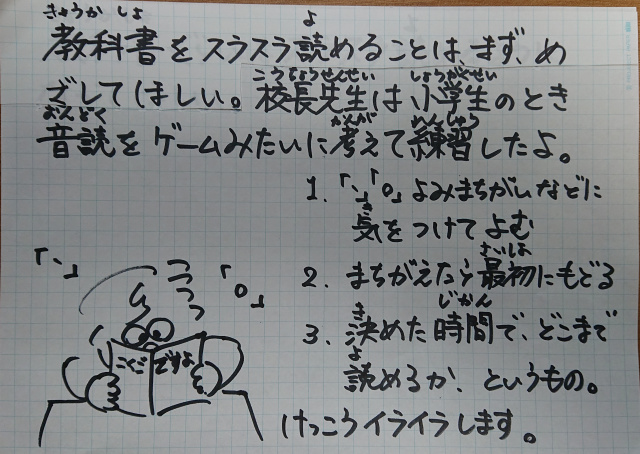 きょうかしょ よ
教科書をスラスラ読めることは、まず、め
ざしてほしい。校長先生は小学生のとき
こうちょうせんせい しょうがくせい
音読をゲームみたいに考えて練習したよ。
おんどく かんが れんしゅう
1.「、」「。」よみまちがいなどに
気をつけてよむ
き
2. まちがえたら最初にもどる
さいしょ
3. 決めた時間で、どこまで
き じかん
読めるか、というもの。
よ
けっこうイライラします。
「、」
「。」
こくご ですよ